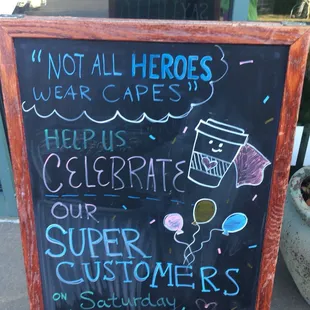 "NOT ALL HEROES
WEAR CAPES"
HELP US
CELEBRATE
OUR
SUPER
CUSTOMERS
ON Saturday